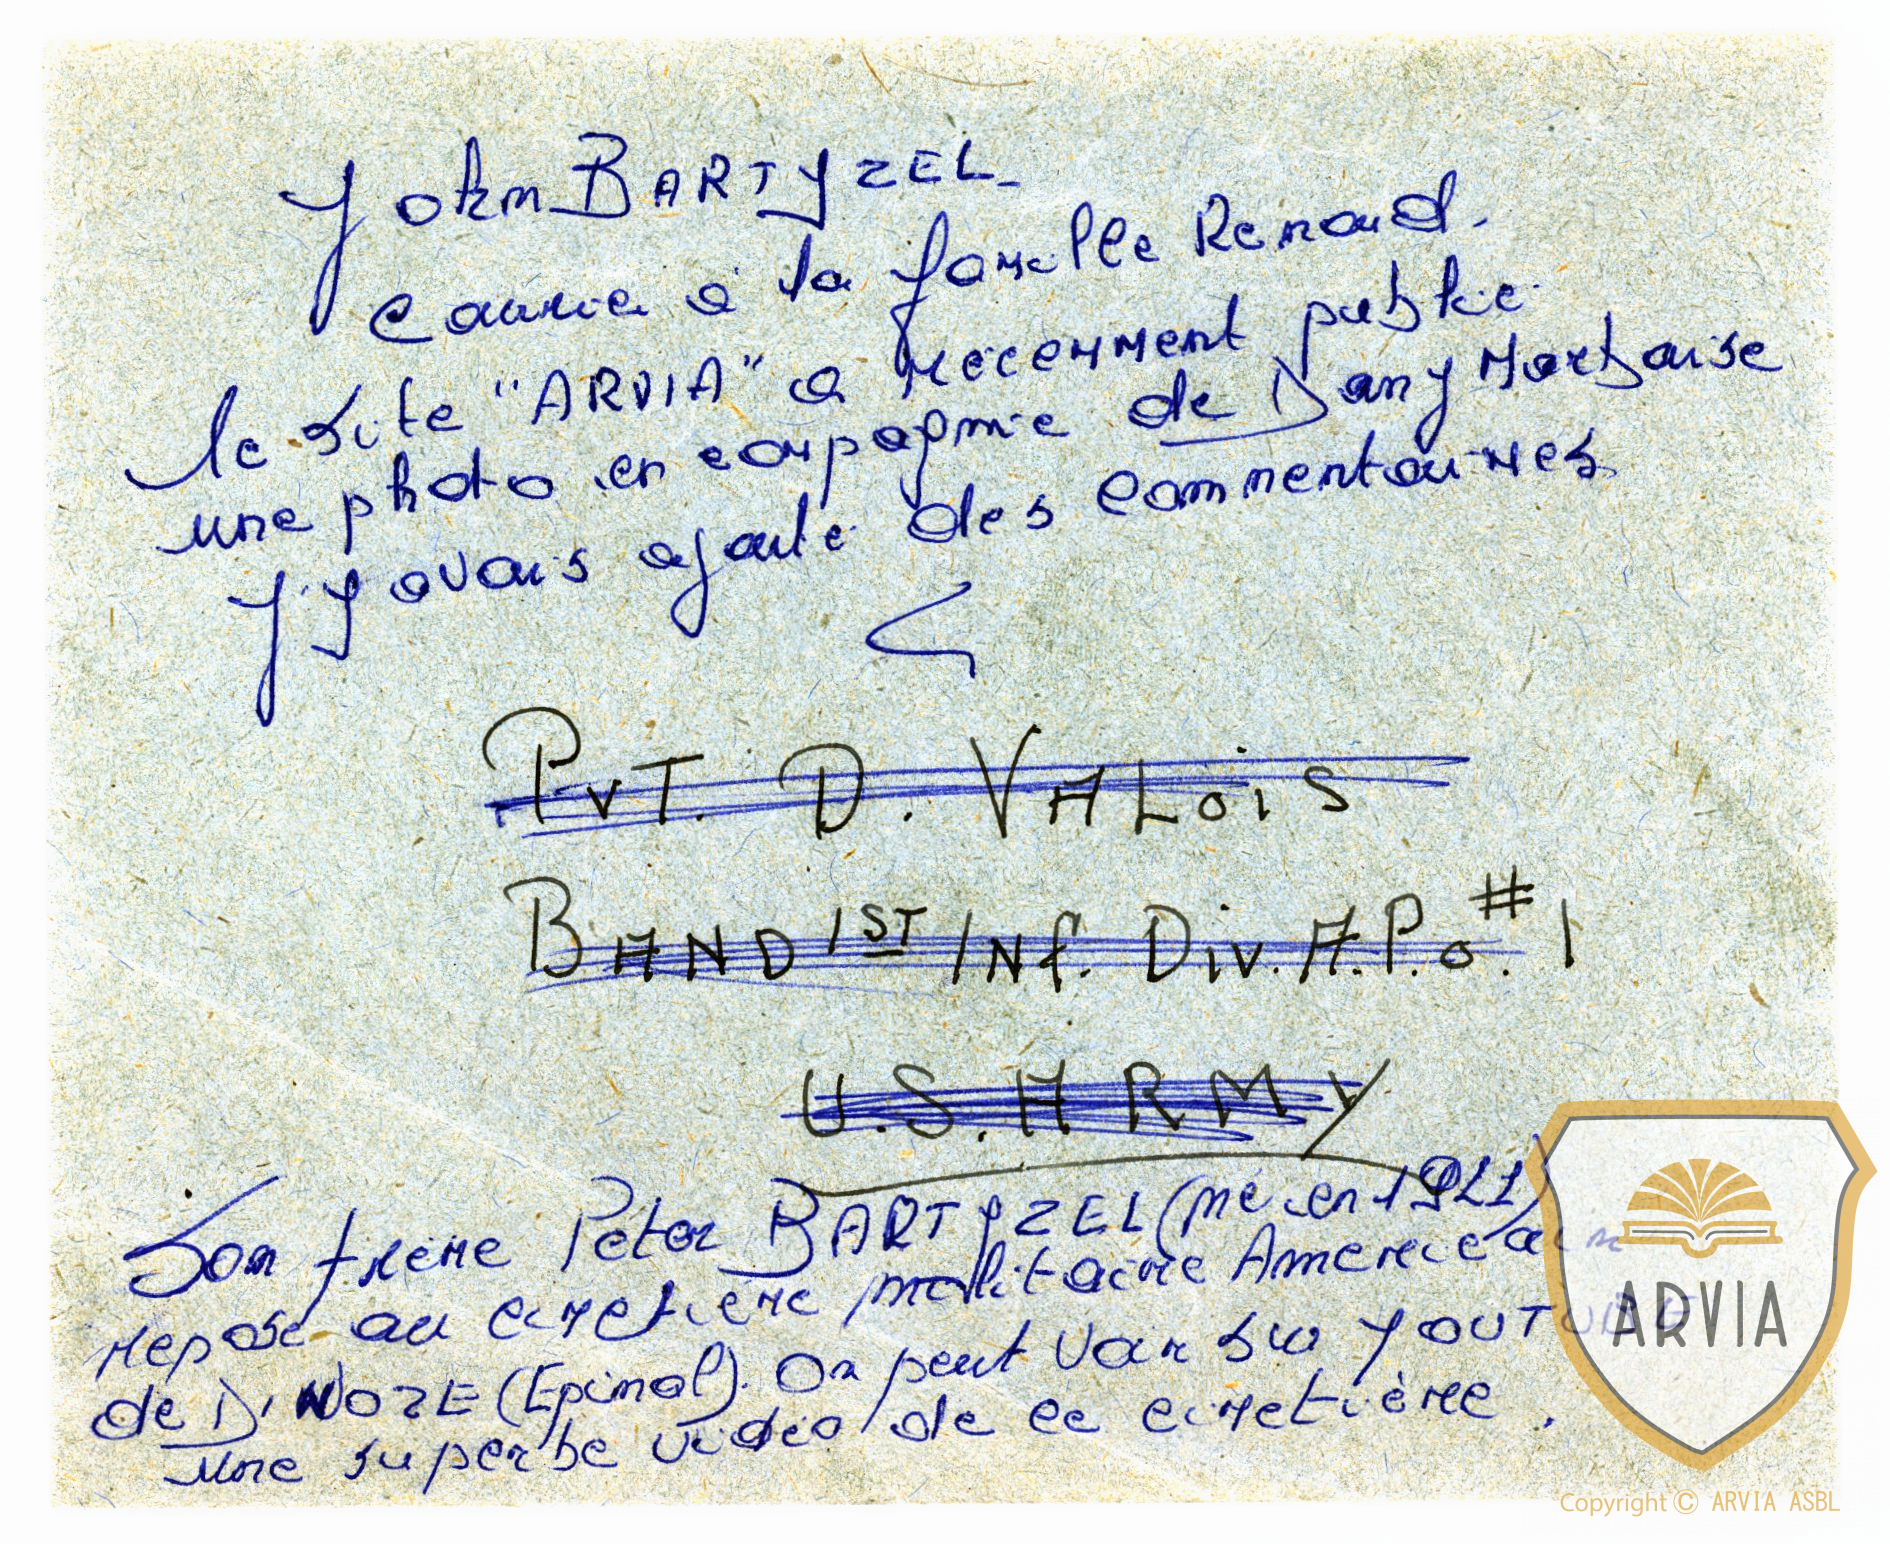 John BARTYZEL_
Courrier à la famille Renard.
le site "ARVIA" a récemment publié
une photo en compagnie de Dany Marbaise
J'y avais ajouté des commentaires
PVT. D. VALOIS
BAND 1ST INf. DIV. A.P.O. #1
U.S. ARMY
Son frère Peter BARTYZEL (né en 1911)
repose au cimetière militaire Américain
de DINOZE (Epinal). On peut voir sur YOUTUBE
une superbe vidéo de ce cimetière.
ARVIA
Copyright © ARVIA ASBL